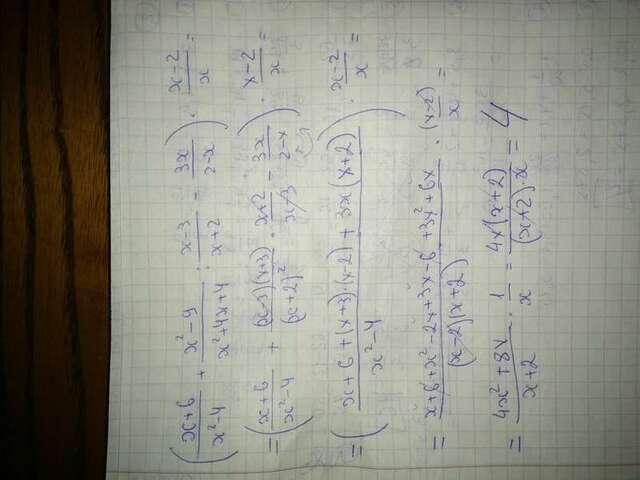 (x+6/x²-4 + x²-9/x²+4x+4 : x-3/x+2 - 3x/2-x) · x-2/x =
= (x+6/x²-4 + (x-3)(x+3)/(x+2)² · x+2/x-3 - 3x/2-x) · x-2/x =
= (x+6+(x+3)·(x-2)+3x(x+2)/x²-4) · x-2/x =
= x+6+x²-2x+3x-6+3x²+6x/(x-2)(x+2) · (x-2)/x =
= 4x²+8x/x+2 · 1/x = 4x(x+2)/(x+2)·x = 4